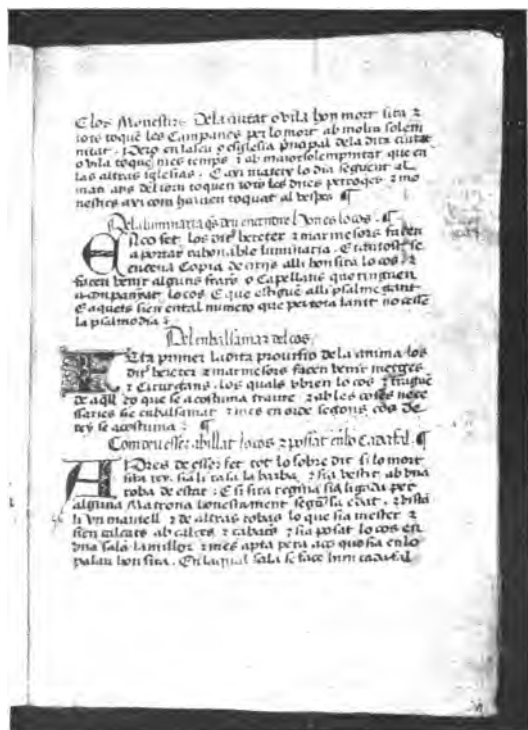 E los Monestirs Dela ciutat o vila hon mort sira ⁊
tots toquē les Campanes per lo mort ab molta solem
nitat. Pero en la seu o esglesia principal dela dita ciutat
o vila toquē mes temps ⁊ ab maior solempnitat que en
las altras iglesias. E axi mateix lo dia seguent al
mati ans del iorn toquen totes les dites perroqes ⁊ mo
nestirs axi com hauien toquat al vespre ¶
Dela luminaria q̄s deu encendre hon es lo cos. ¶
Aço fet, los dits hereter ⁊ marmesors facen
aportar rahonable luminaria. E tantost se
encena Copia de ciris alli hon sira lo cos ⁊
facen venir alguns frares o Capellans que tinguen
acompanyat lo cos. E que estiguē alli psalmejant
E aquets sien en tal numero que per tota la nit no cesse
la psalmodia ⁊
Del enbalsamar del cos.
Feta primer la dita prouisio de la anima los
dits hereter ⁊ marmesors facen venir metges
⁊ Cirurgians. los quals obren lo cos ⁊ traguē
de aqll ço que se acostuma traure ⁊ ab les coses nece
ssaries sie enbalsamat ⁊ mes en orde segons cos de
rey se acostuma ⁊ ¶
Com deu esser abillat lo cos ⁊ possat en lo Cadafal. ¶
Apres de esser fet tot lo sobre dit si lo mort
sira rey. sia li rasa la barba. ⁊ sia vestit ab vna
roba de estat. E si sira regina sia ligada per
alguna Matrona honestament segōs sa edat. ⁊ vista
li vn mantell ⁊ de altras robas lo que sia mester ⁊
sien calcats ab calces ⁊ çabates ⁊ sia posat lo cos en
vna sala la millor ⁊ mes apta pera aço que sia en lo
palau hon sira. En la qual sala se face hun cadafal